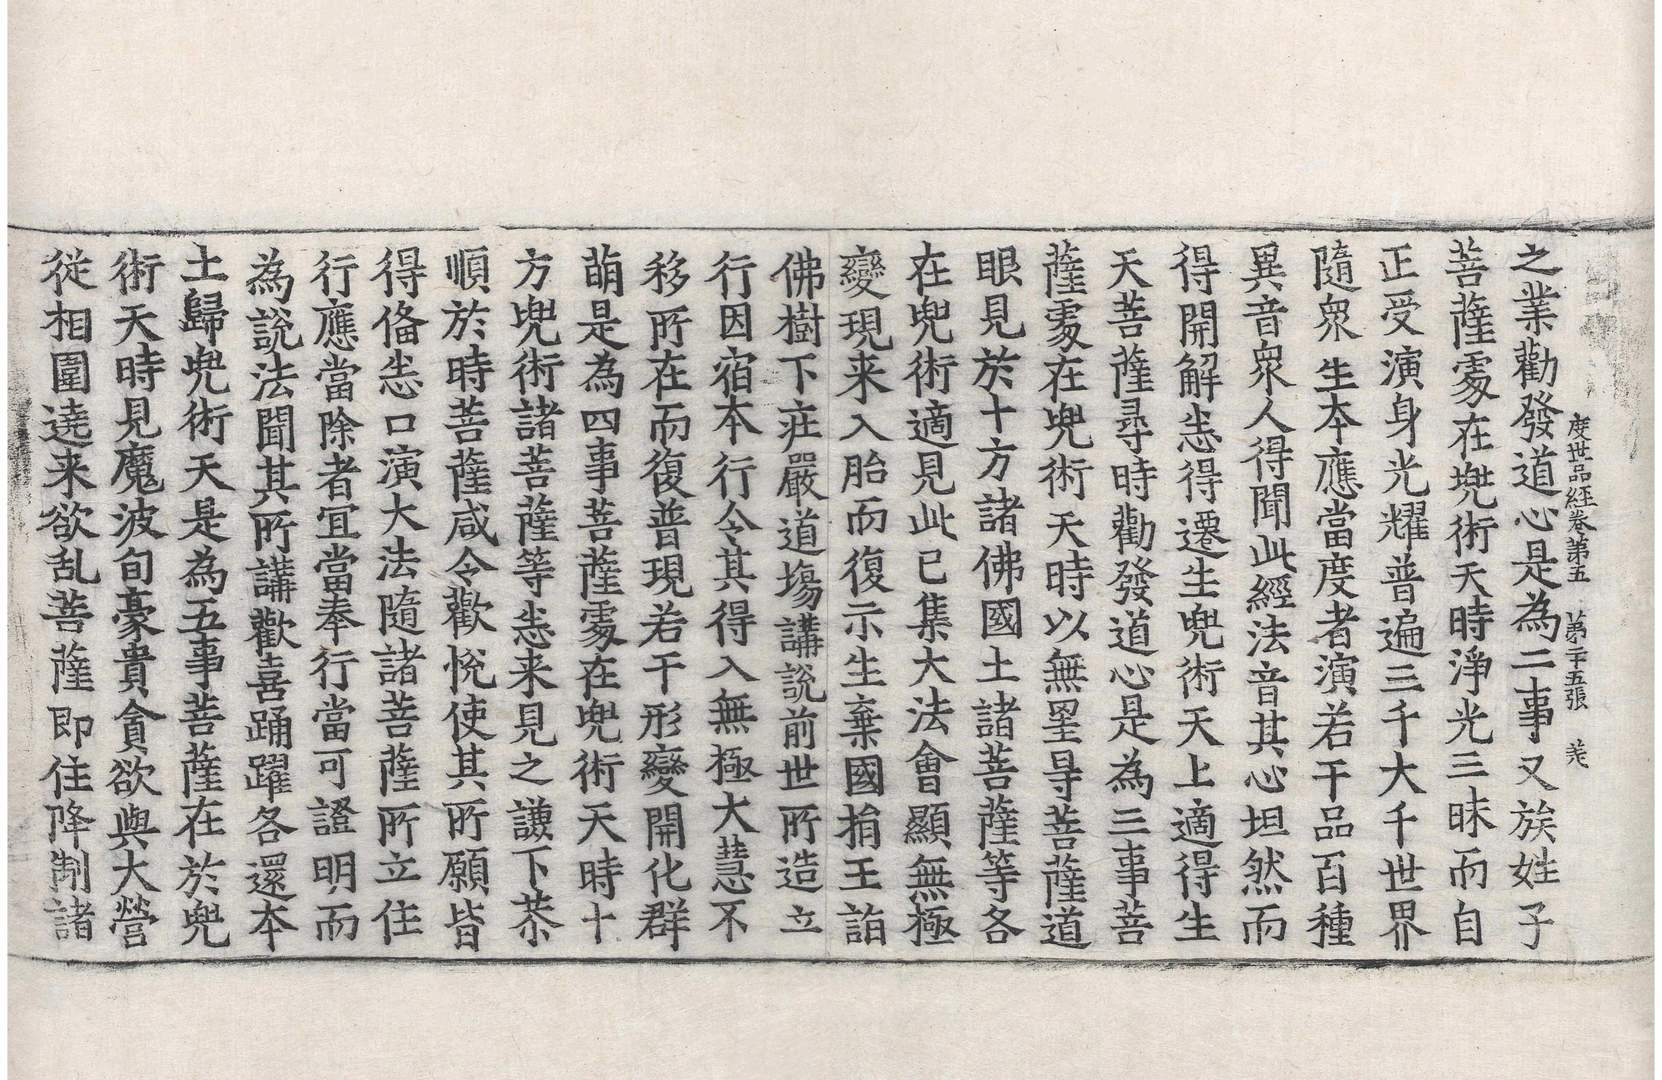 度世品經卷第五　第二十五張　羌
之業勸發道心是為二事又族姓子
菩薩䖏在兠術天時淨光三昧而自
正受演身光耀普遍三千大千世界
隨衆生本應當度者演若干品百種
異音衆人得聞此經法音其心坦然而
得開解悉得遷生兠術天上適得生
天菩薩尋時勸發道心是為三事菩
薩䖏在兠術天時以無罣㝵菩薩道
眼見於十方諸佛國土諸菩薩等各
在兠術適見此已集大法會顯無極
變現来入胎而復示生棄國捐王詣
佛樹下疘嚴道塲講說前世所造立
行因宿本行令其得入無極大慧不
移所在而復普現若干形變開化群
萌是為四事菩薩䖏在兠術天時十
方兠術諸菩薩等悉来見之謙下恭
順於時菩薩咸令歡悅使其所願皆
得俻悉口演大法隨諸菩薩所立住
行應當除者冝當奉行當可證明而
為說法聞其所講歡喜踊躍各還本
土歸兠術天是為五事菩薩在於兠
術天時見魔波旬豪貴貪欲與大營
從相圍遶来欲乱菩薩即住降制諸